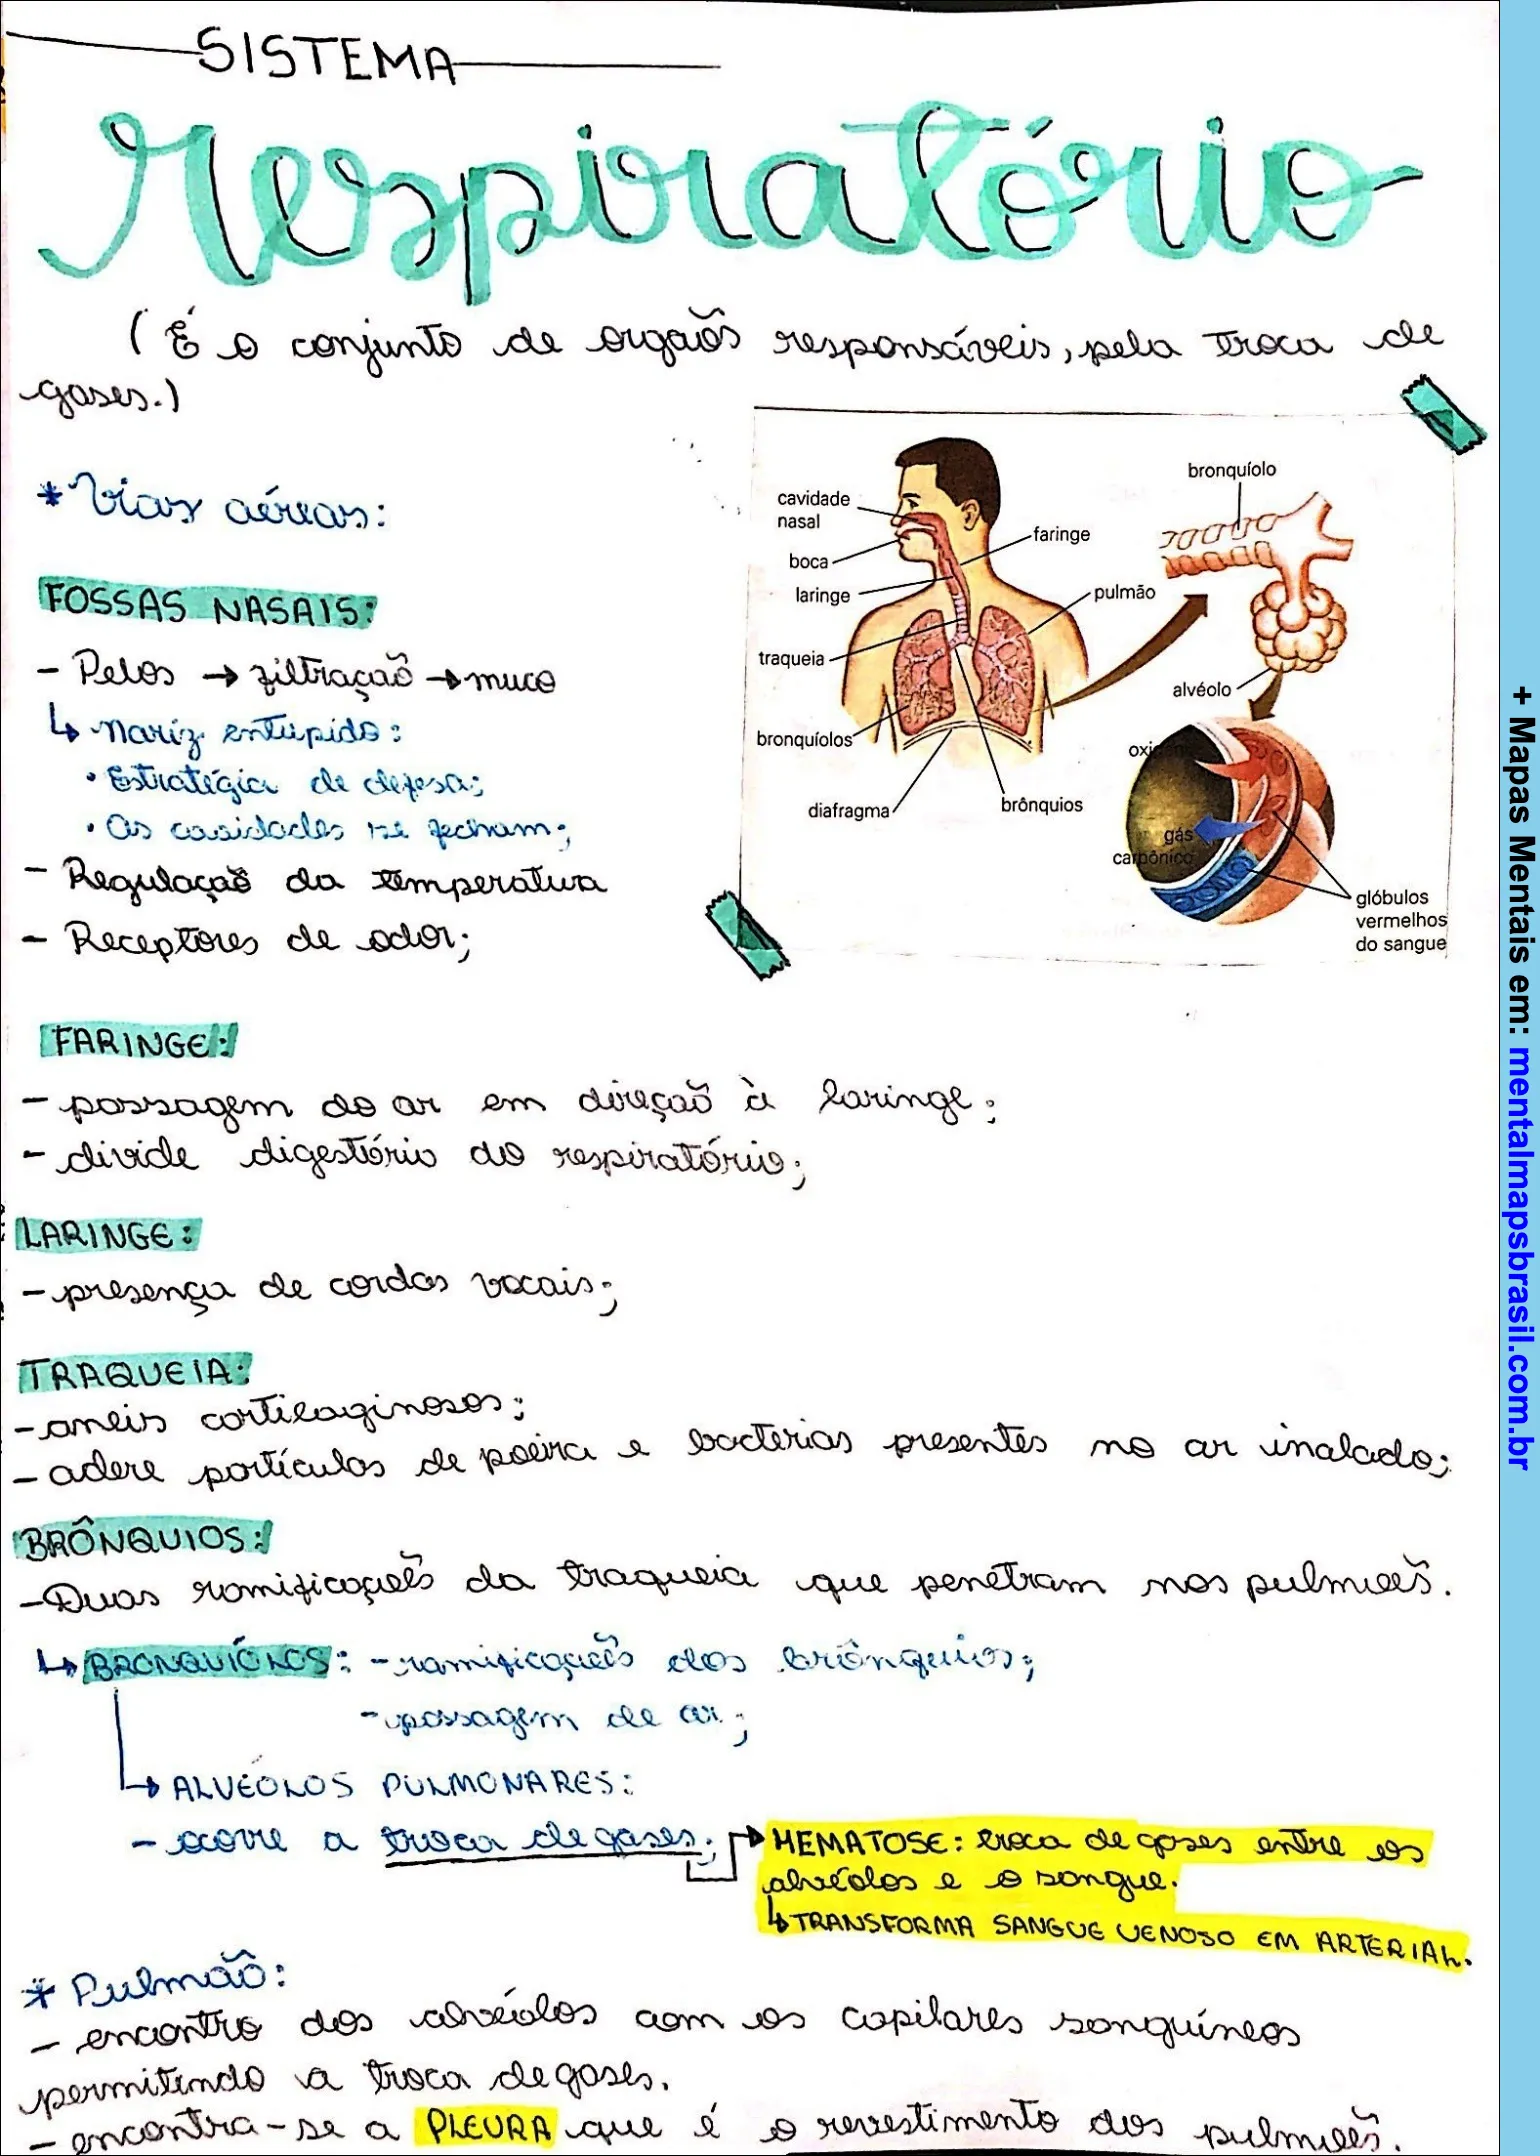 SISTEMA
respiratório
(É o conjunto de orgãos responsáveis, pela troca de
gases.)
* Vias aéreas:
FOSSAS NASAIS:
- Pelos → filtração → muco
↳ Nariz entupido:
• Estratégia de defesa;
• As cavidades se fecham;
- Regulação da temperatura
- Receptores de odor;
cavidade
nasal
boca
laringe
traqueia
bronquíolos
diafragma
faringe
pulmão
brônquios
bronquíolo
alvéolo
gás
carbônico
glóbulos
vermelhos
do sangue
FARINGE:
- passagem do ar em direção à laringe;
- divide digestório do respiratório;
LARINGE:
- presença de cordas vocais;
TRAQUEIA:
- aneis cartilaginosos;
- adere partículas de poeira e bactérias presentes no ar inalado;
BRÔNQUIOS:
- Duas ramificações da traqueia que penetram nos pulmões.
↳ BRONQUÍOLOS: - ramificações dos brônquios;
- passagem de ar;
↳ ALVÉOLOS PULMONARES:
- ocorre a troca de gases;
HEMATOSE: troca de gases entre os
alvéolos e o sangue.
↳ TRANSFORMA SANGUE VENOSO EM ARTERIAL.
* Pulmão:
- encontro dos alvéolos com os capilares sanguíneos
permitindo a troca de gases.
- encontra-se a PLEURA que é o revestimento dos pulmões.
+ Mapas Mentais em: mentalmapsbrasil.com.br